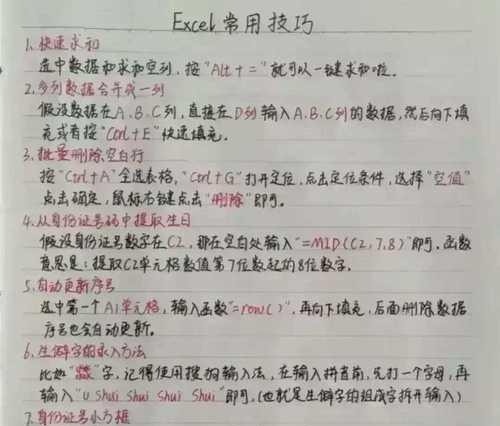 Excel 常用技巧
1.快速求和
选中数据和求和空列，按"Alt + ="就可以一键求和啦。
2.多列数据合并成一列
假设数据在A.B.C列，直接在D列输入A.B.C列的数据，然后向下填
充或者按"Ctrl+E"快速填充。
3.批量删除空白行
按"Ctrl+A"全选表格，"Ctrl+G"打开定位，点击定位条件，选择"空值"
点击确定，鼠标右键点击"删除"即可。
4.从身份证号码中提取生日
假设身份证号数字在C2，那在空白处输入"=MID(C2,7,8)"即可，函数
意思是：提取C2单元格数值第7位数起的8位数字。
5.自动更新序号
选中第一个A1单元格，输入函数"=row()"，再向下填充，后面删除数据
序号也会自动更新。
6.生僻字的录入方法
比如"淼"字，记得使用搜狗输入法，在输入拼音前，先打一个字母，再
输入"U shui shui shui shui"即可。(也就是生僻字的组成字拆开输入)
7.身份证号小方框